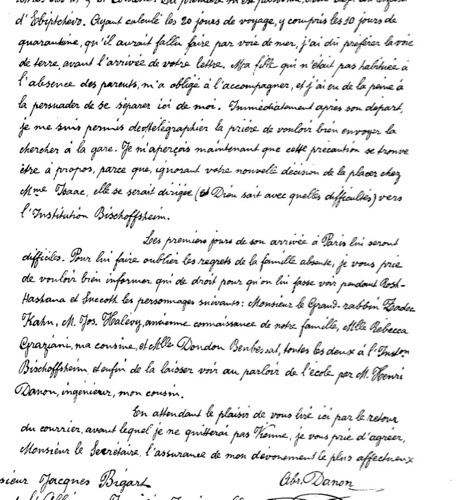 d'Ebiptchévo. Ayant calculé les 20 jours de voyage, y compris les 10 jours de
quarantaine, qu'il aurait fallu faire par voie de mer, j'ai dû préférer la voie
de terre, avant l'arrivée de votre lettre. Ma fille qui n'était pas habituée à
l'absence des parents, m'a obligé à l'accompagner, et j'ai eu de la peine à
la persuader de se séparer ici de moi. Immédiatement après son départ,
je me suis permis de télégraphier la prière de vouloir bien envoyer la
chercher à la gare. Je m'aperçois maintenant que cette précaution se trouve
être à propos, parce que, ignorant votre nouvelle décision de la placer chez
Mme Isaac, elle se serait dirigée (et Dieu sait avec quelles difficultés) vers
l'Institution Bischoffsheim.
Les premiers jours de son arrivée à Paris lui seront
difficiles. Pour lui faire oublier les regrets de la famille absente, je vous prie
de vouloir bien informer qui de droit pour qu'on lui fasse voir pendant Rosh-
Hashana et Souccoth les personnages suivants: Monsieur le Grand-rabbin Zadoc
Kahn, M. Jos. Halévy, ancienne connaissance de notre famille, Mlle Rebecca
Graziani, ma cousine, et Mlle Doudon Benbessat, toutes les deux à l'Inston
Bischoffsheim et enfin de la laisser voir au parloir de l'école par M. Henri
Danon, ingénieur, mon cousin.
En attendant le plaisir de vous lire ici par le retour
du courrier, avant lequel je ne quitterai pas Vienne, je vous prie d'agréer,
Monsieur le Secrétaire, l'assurance de mon dévouement le plus affectueux
Abr. Danon
sieur Jacques Bigart